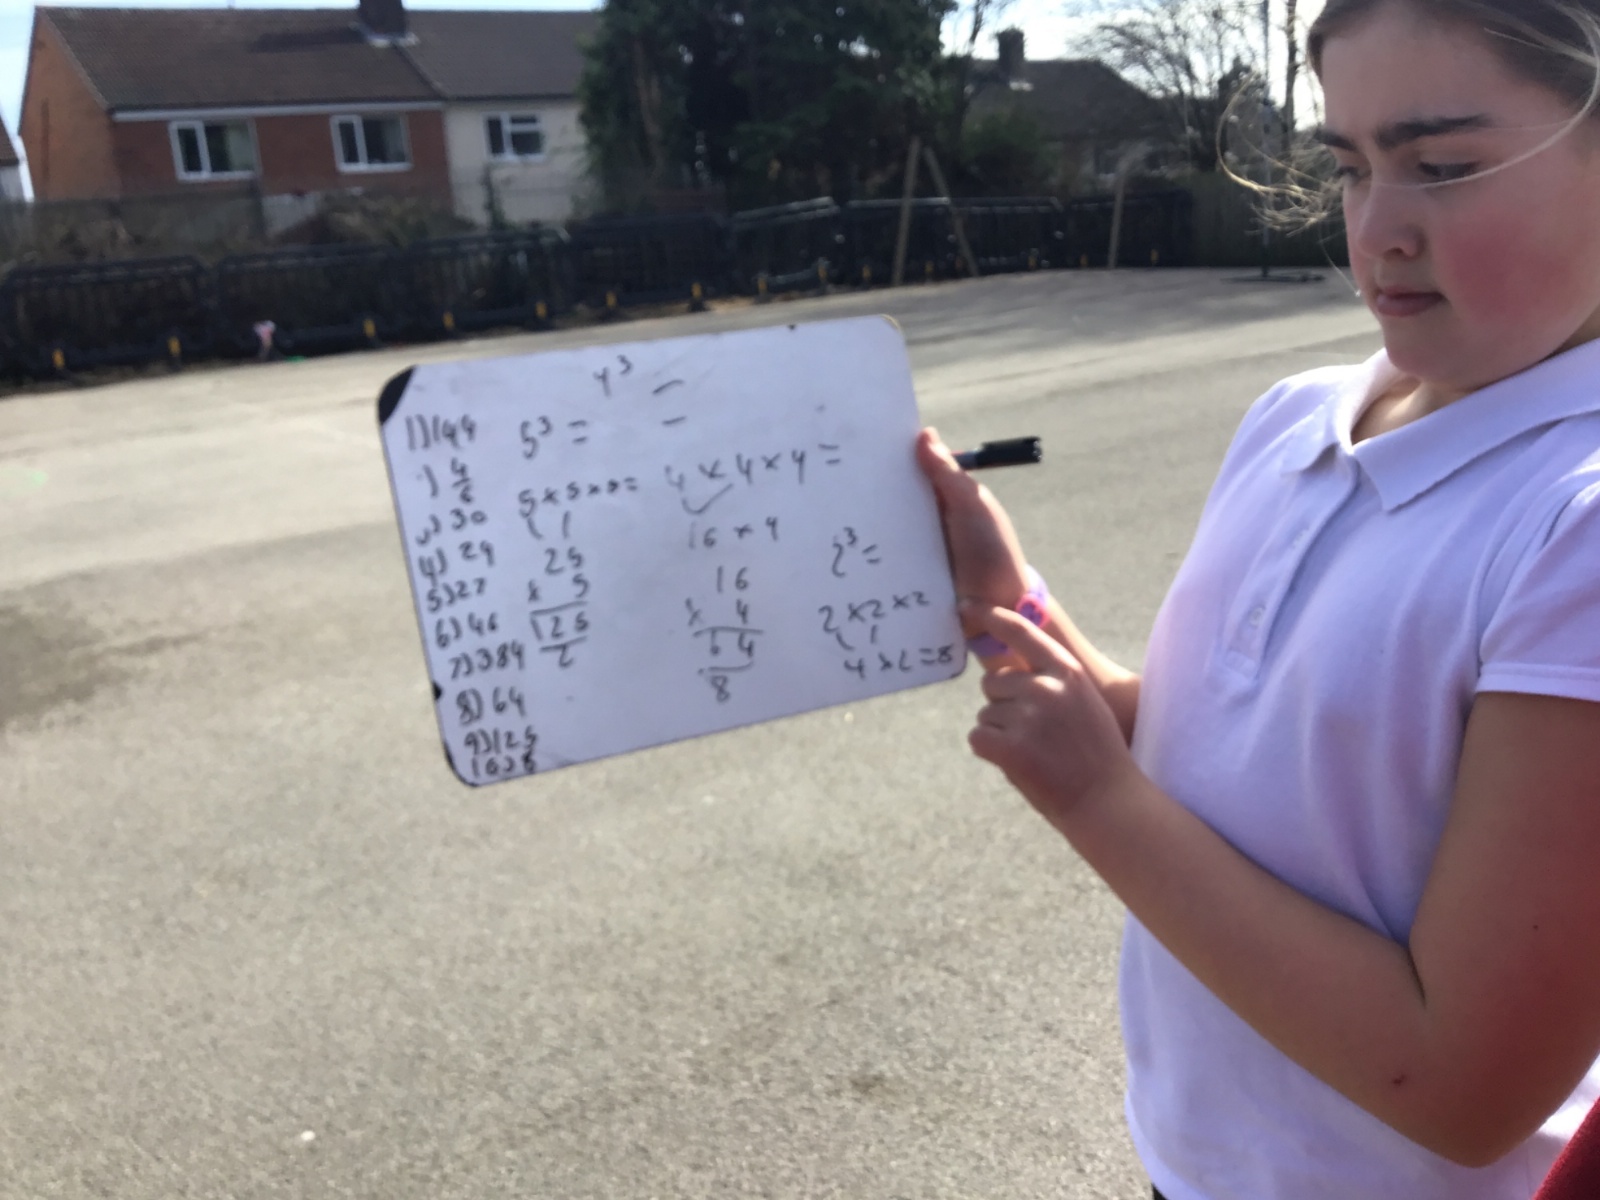 4³ =
1) 144
) 4/6
3) 30
4) 29
5) 27
6) 46
7) 384
8) 64
9) 125
10) 8
5³ =
5 × 5 × 5 =
25
× 5
125
2
4 × 4 × 4 =
16 × 4
16
× 4
64
8
2³ =
2 × 2 × 2
4 × 2 = 8